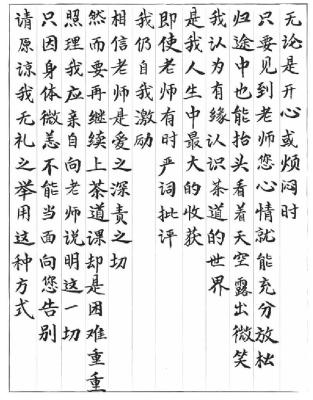 无论是开心或烦闷时
只要见到老师您心情就能充分放松
归途中也能抬头看着天空露出微笑
我认为有缘认识茶道的世界
是我人生中最大的收获
即使老师有时严词批评
我仍自我激励
相信老师是爱之深责之切
然而要再继续上茶道课却是困难重重
照理我应亲自向老师说明这一切
只因身体微恙不能当面向您告别
请原谅我无礼之举用这种方式